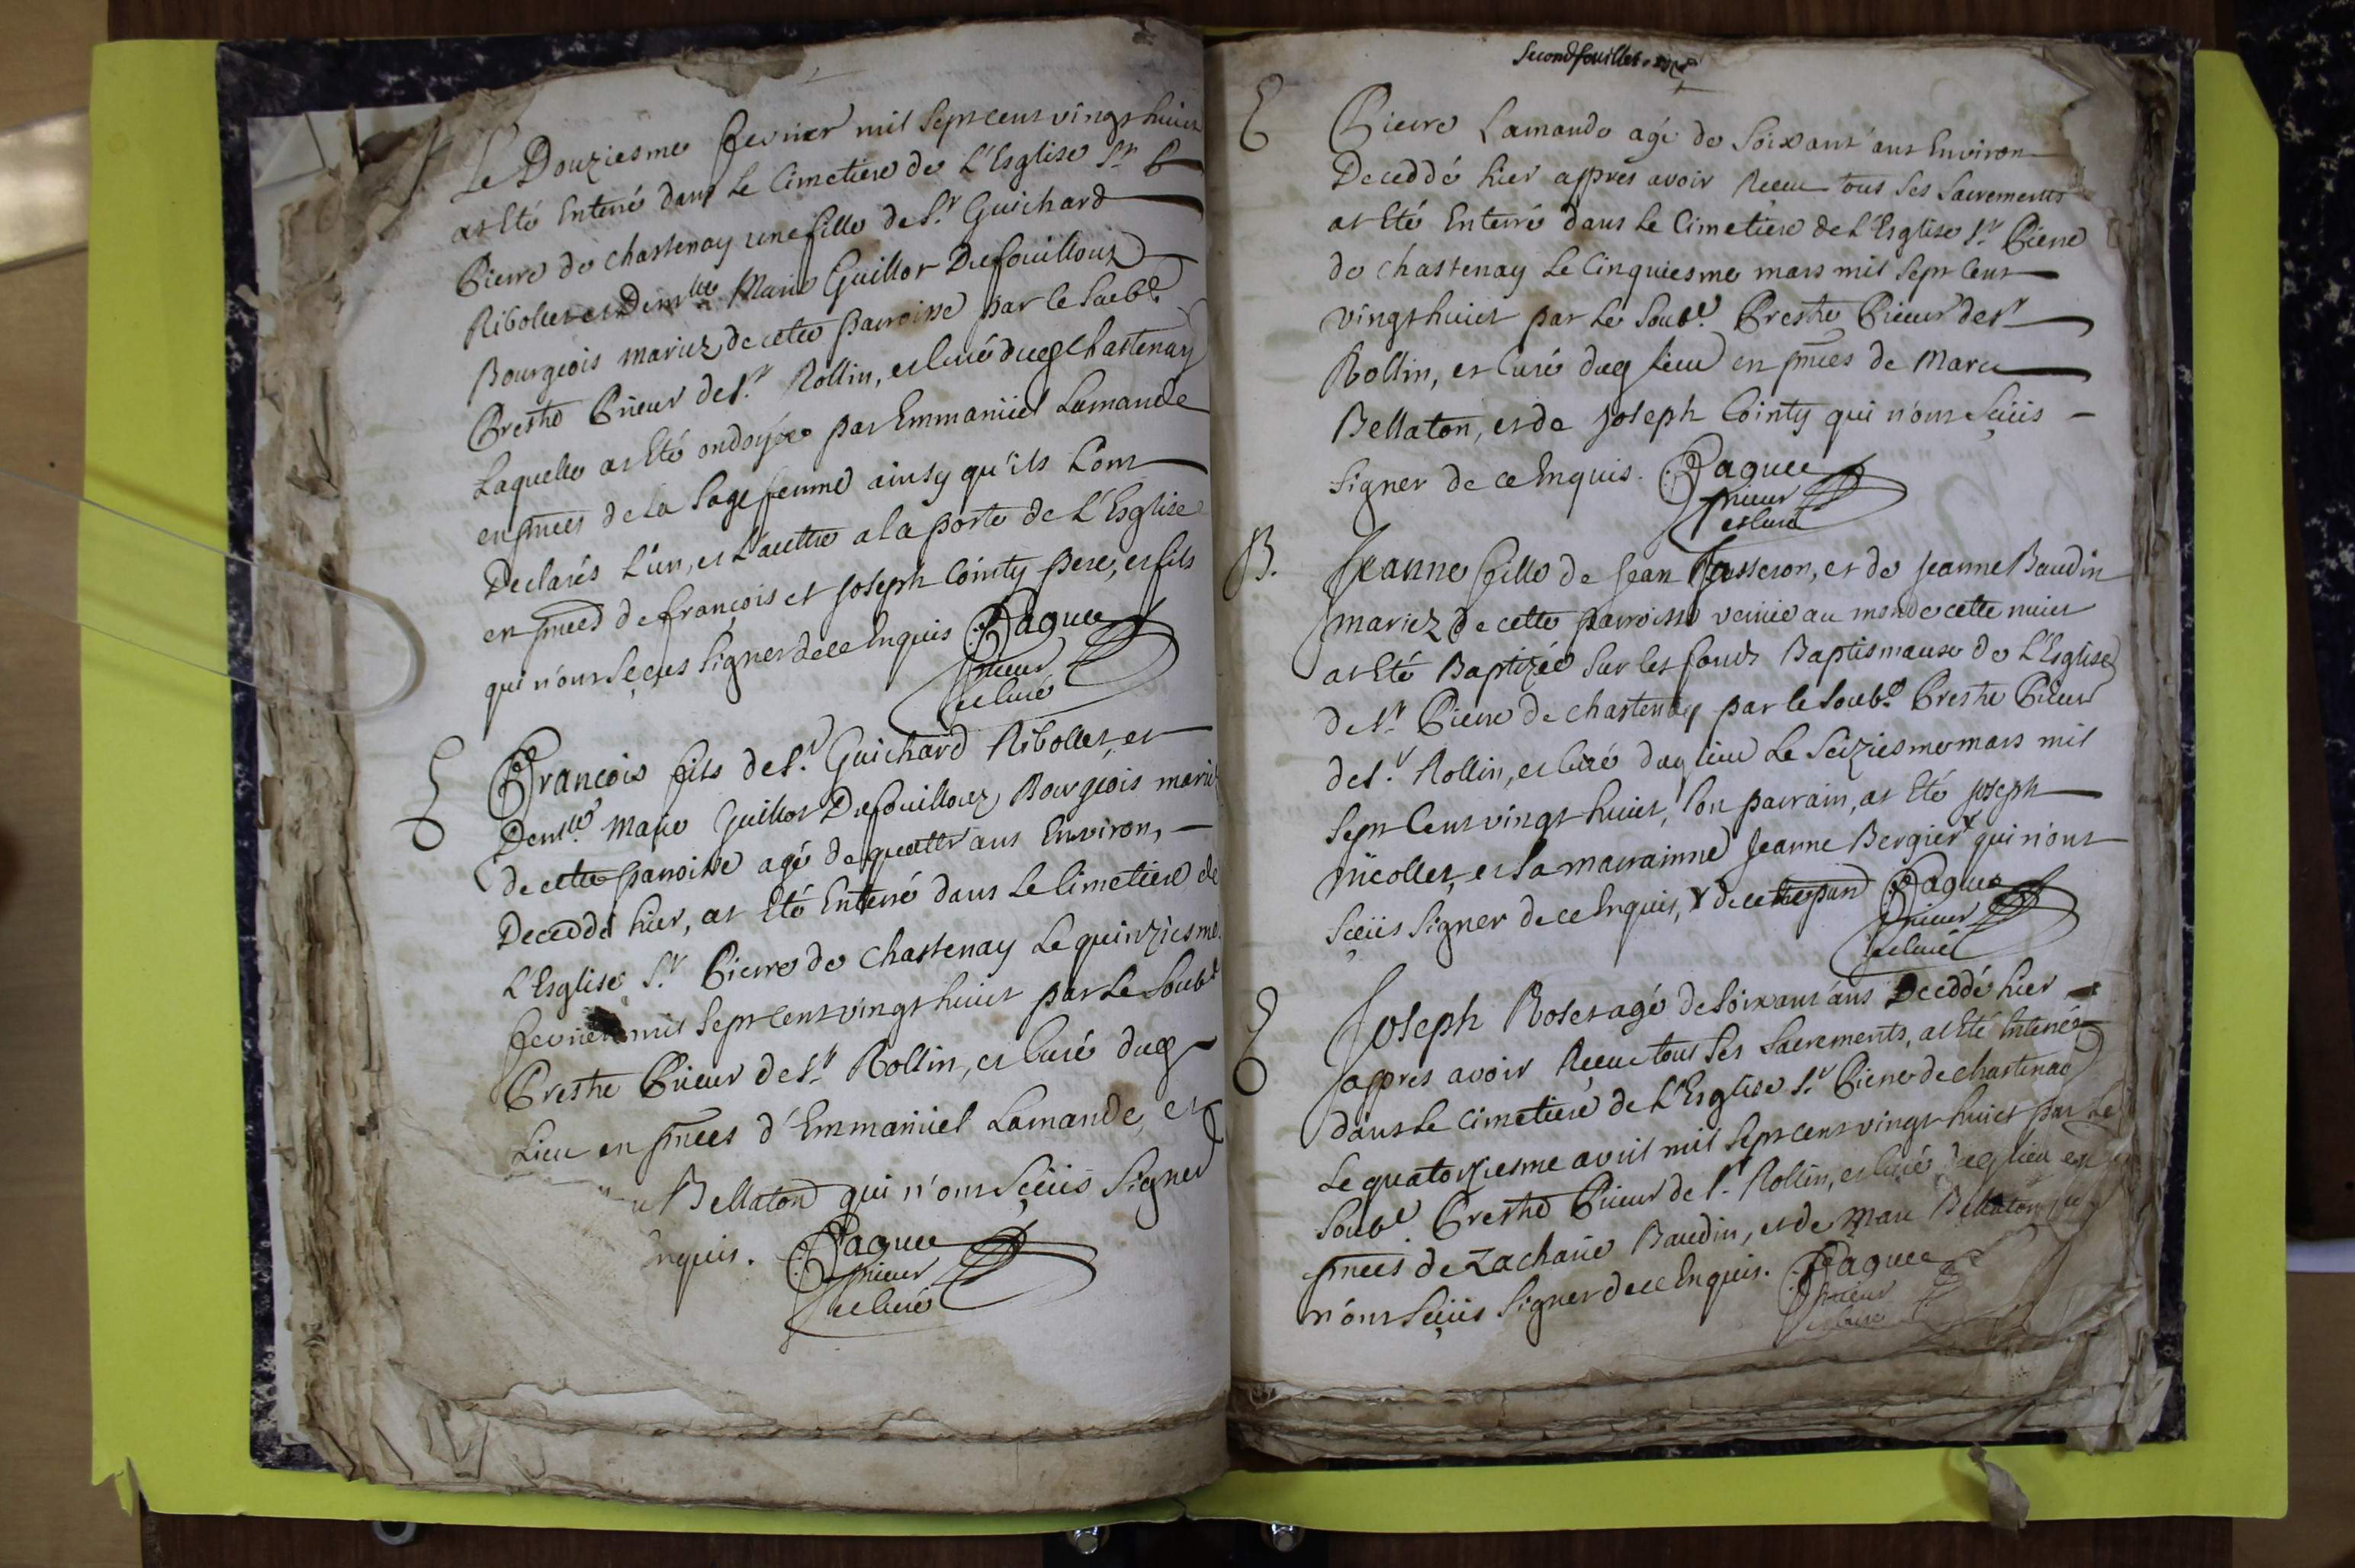 Le Douziesme fevrier mil sept cent vingt huict
at Eté Enterré dans le Cimetiere de L'Esglise St. P
Pierre de chastenay une fille de Sr. Guichard
Ribollet et Demlle Marie Guillot Dufouilloux
Bourgeois mariez de cette parroisse par le soubd.
Prestre Prieur de St. Rollin, et curé dudt chastenay
Laquelle at Eté ondoyée par Emmanüel Lamande
en pnces de la sage femme ainsy qu'ils L'ont
Declarés L'un, et L'autre a la porte de L'Esglise
en pnces de françois et Joseph Cointy pere, et fils
qui n'ont sçeus signer de ce Enquis Paquee
prieur
et curé
E
François fils de Sr. Guichard Ribollet, et
Demlle. Marie Guillot Dufouilloux Bourgeois mariez
de cette parroisse agé de quattr ans Environ,
Deceddé hier, at Eté Enterré dans le Cimetiere de
L'Esglise St. Pierre de Chastenay Le quinziesme
fevrier mil sept cent vingt huict par Le soubd
Prestre Prieur de St. Rollin, et curé dudt
Lieu en pnces d'Emmanüel Lamande, et
Bellaton qui n'ont sçeüs signer
Enquis. Paquee
prieur
et curé
Second feuillet
E
Pierre Lamande agé de soixant ans Environ
Deceddé hier appres avoir Receu tous ses sacrements
at Eté Enterré dans le Cimetiere de L'Esglise St. Pierre
de Chastenay Le Cinquiesme mars mil sept cent
vingt huict par Le soubd. Prestre Prieur de St
Rollin, et Curé dudt Lieu en pnces de Marc
Bellaton, et de Joseph Cointy qui n'ont sçeüs
signer de ce Enquis. Paquee
prieur
et curé
B.
Jeanne fille de Jean Tasseron, et de Jeanne Baudin
mariez de cette parroisse venüe au monde cette nuict
at Eté Baptizée sur les fonds Baptismaux de L'Esglise
de St. Pierre de chastenay par le soubd. Prestre Prieur
de St. Rollin, et curé dudt lieu Le seiziesme mars mil
sept Cent vingt huict, son parrain, at Eté Joseph
Nicollet, et sa marrainne Jeanne Bergier x qui n'ont
sçeüs signer de ce Enquis, x de cette par Paquee
prieur
et curé
E
Joseph Roset agé de soixant ans Deceddé hier
appres avoir Receu tous ses sacrements, at Eté Enterré
dans Le Cimetiere de L'Esglise St. Pierre de chastenay
Le quatorziesme avril mil sept cent vingt huict par Le
soubd. Prestre Prieur de St. Rollin, et curé dudt lieu en
pnces de Zacharie Baudin, et de Marc Bellaton qui
n'ont sçeüs signer de ce Enquis. Paquee
prieur
et curé